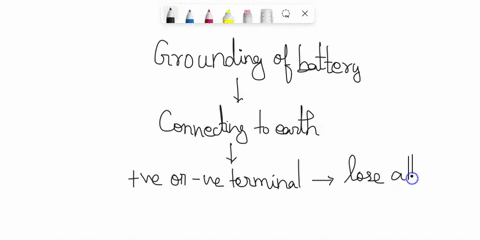 Grounding of battery
↓
Connecting to earth
↓
+ve or -ve terminal → lose all